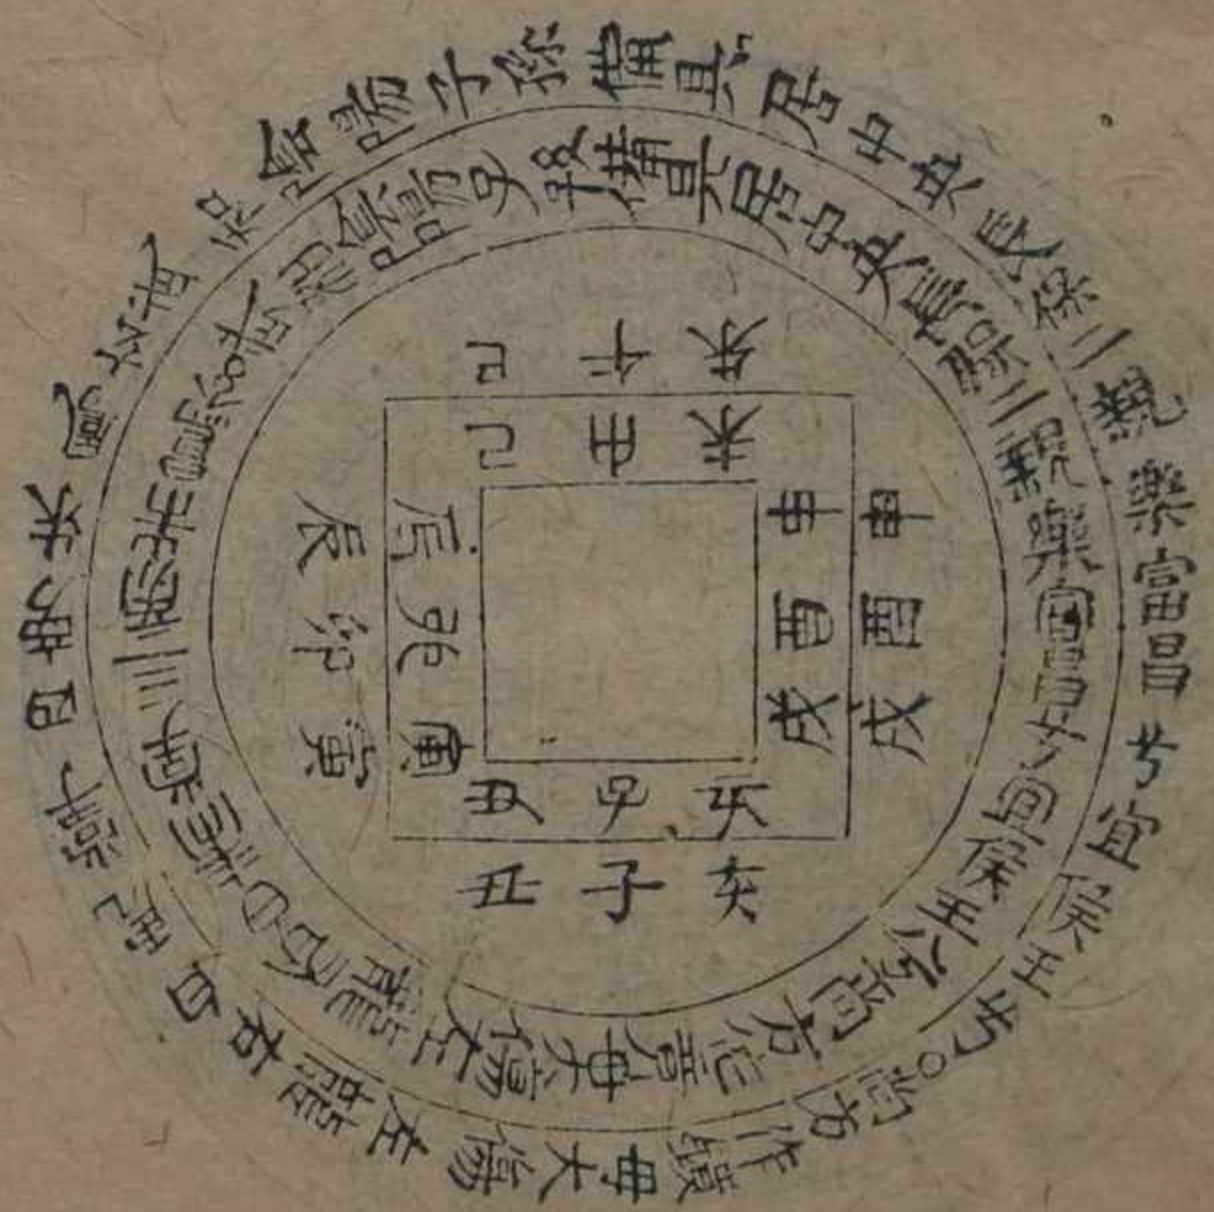 尚方作鏡毋大傷左龍右白虎掌四旁朱鳳玄武和陰陽子孫備具居中央長保二親樂富昌兮宜侯王兮
尚方作竟毋大傷左龍右白虎掌三旁朱鳳玄武和陰陽子孫備具居中央長保二親樂富昌兮宜侯王兮
子丑寅卯辰巳午未申酉戌亥
子丑寅卯辰巳午未申酉戌亥